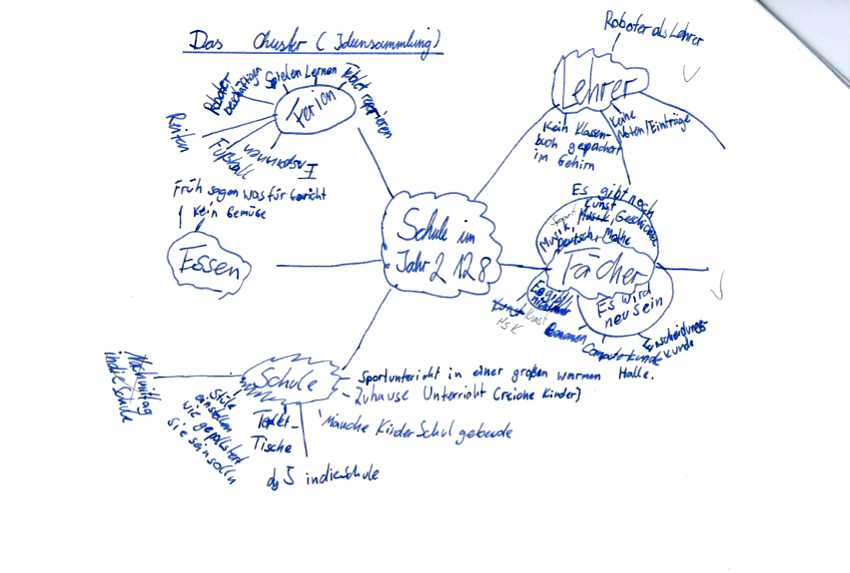 Das Cluster (Ideensammlung)
Roboter als Lehrer
Lehrer
Kein Klassen-
buch gepeichert
im Gehirn
Keine
Noten/Einträge
Ferien
Roboter
beschäftigen
Spielen
Lernen
Tablet reparieren
Reiten
Fußball
Entspannen
Früh sagen was für Gericht
Kein Gemüse
Essen
Schule im
Jahr 2 128
Es gibt noch
Kunst
Musik, Geschichte
Musik,
Deutsch, Mathe
Fächer
Es wird
neu sein
Kunst
HSK
Computerkunde
Entscheidungs-
kunde
Schule
Nachmittag
in die Schule
Stüle
einstellen
wie gepolstert
sie sein solln
Tablet-
Tische
Sportunterricht in einer großen warmen Halle.
- Zuhause Unterricht (reiche Kinder)
Manche Kinder Schul gebeude
in die Schule